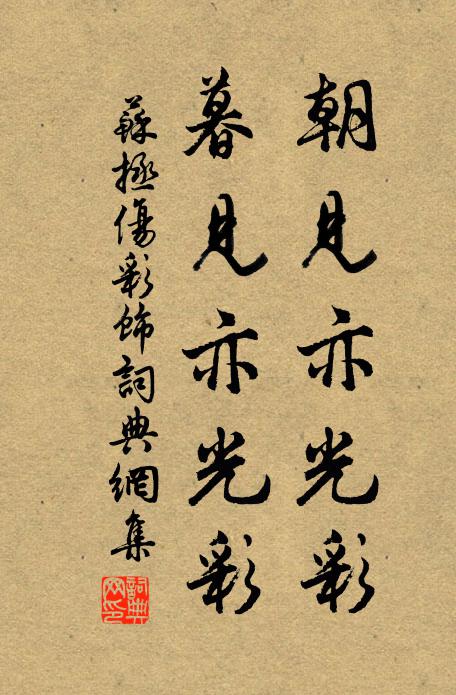 朝見亦光彩
暮見亦光彩
蘇拯傷彩飾詞典網集
詞典網印